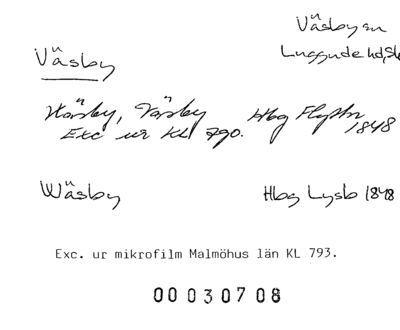 Väsby sn
Luggude hd, Sk
Väsby
Wäsby, Väsby Hbg Flyttn
Exc ur KL 790. 1848
Wäsby Hbg Lysb 1848
Exc. ur mikrofilm Malmöhus län KL 793.
00030708